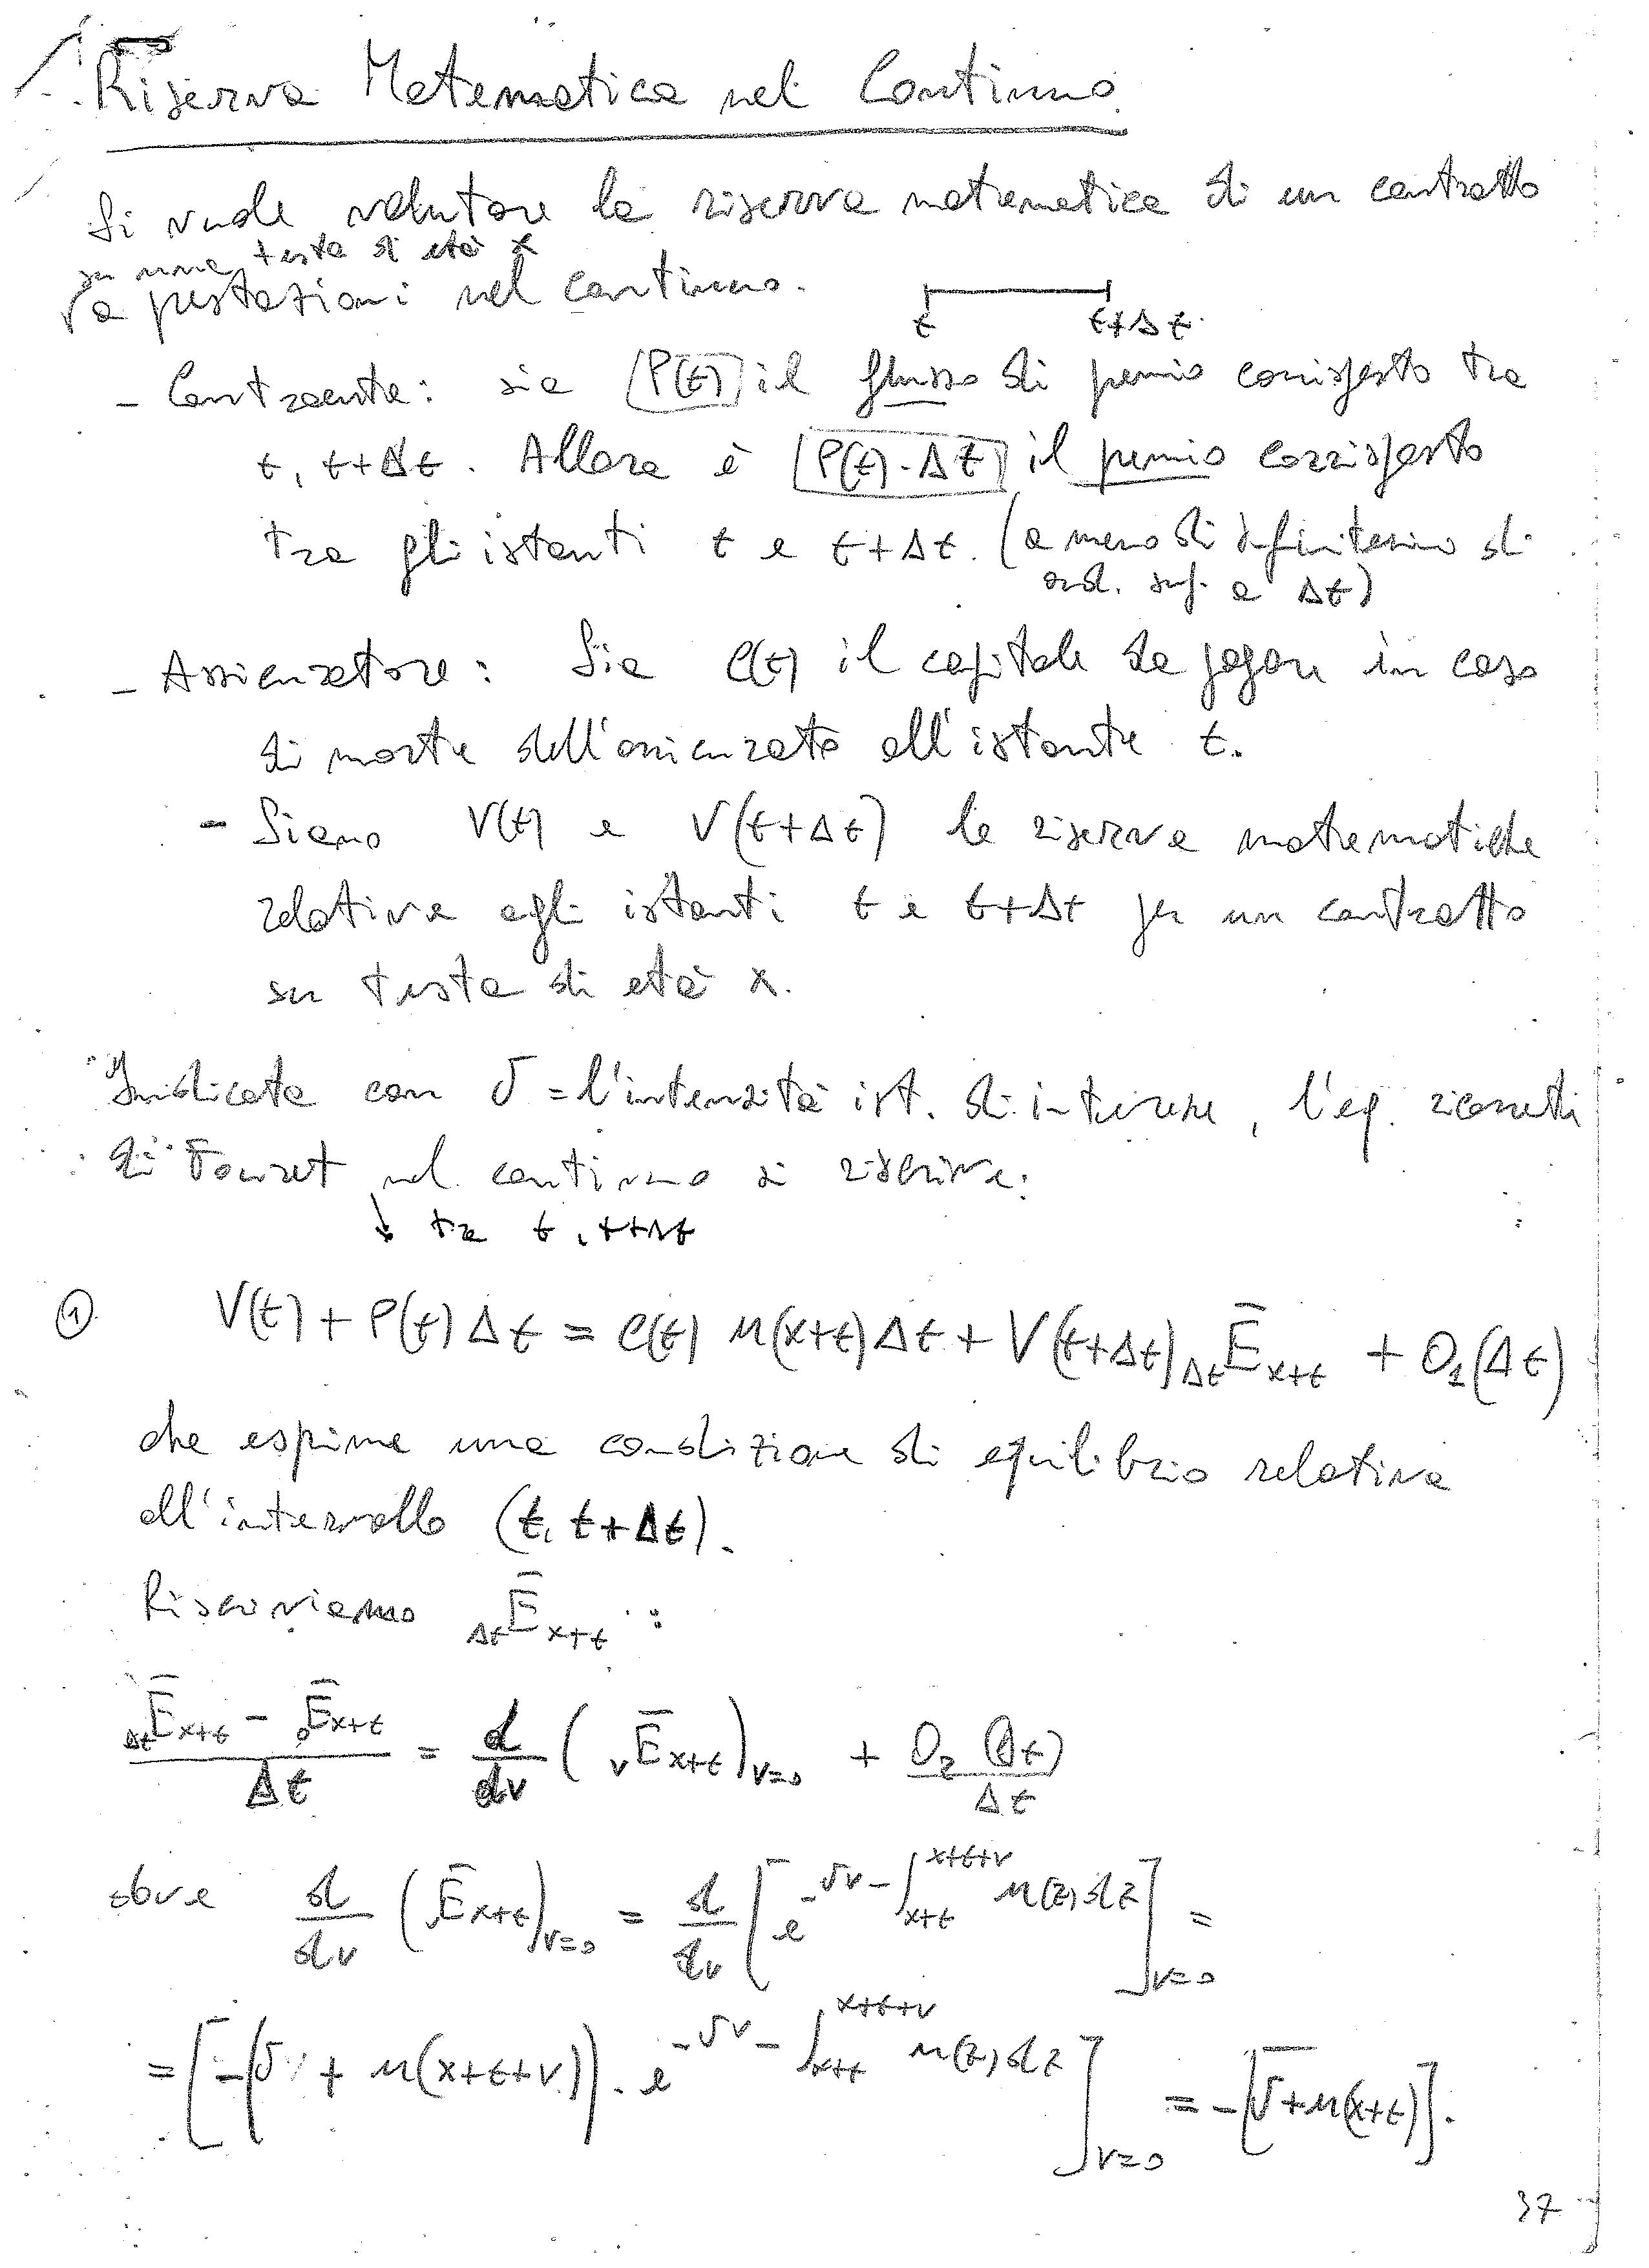 Riserva Matematica nel Continuo
Si vuole valutare la riserva matematica di un contratto
su una testa di età x
a prestazioni nel continuo.
t t+Δt
- Contraente: sia P(t) il flusso di premio corrisposto tra
t, t+Δt. Allora è P(t)·Δt il premio corrisposto
tra gli istanti t e t+Δt. (a meno di infinitesimo di
ord. sup. a Δt)
- Assicuratore: Sia C(t) il capitale da pagare in caso
di morte dell'assicurato all'istante t.
- Siano V(t) e V(t+Δt) le riserve matematiche
relative agli istanti t e t+Δt per un contratto
su testa di età x.
Indicata con δ = l'intensità ist. di interesse, l'eq. ricorrente
di Fouret nel continuo si riscrive:
↓ tra t, t+Δt
① V(t) + P(t) Δt = C(t) μ(x+t) Δt + V(t+Δt) _Δt Ē_x+t + O₁(Δt)
che esprime una condizione di equilibrio relativa
all'intervallo (t, t+Δt).
Riscriviamo _Δt Ē_x+t :
(_Δt Ē_x+t - _0 Ē_x+t) / Δt = d/dv (_v Ē_x+t)_v=0 + O₂(Δt) / Δt
dove d/dv (_v Ē_x+t)_v=0 = d/dv [e^(-δv - ∫_x+t^x+t+v μ(z) dz)]_v=0 =
= [-(δ + μ(x+t+v)) · e^(-δv - ∫_x+t^x+t+v μ(z) dz)]_v=0 = -[δ+μ(x+t)].
37